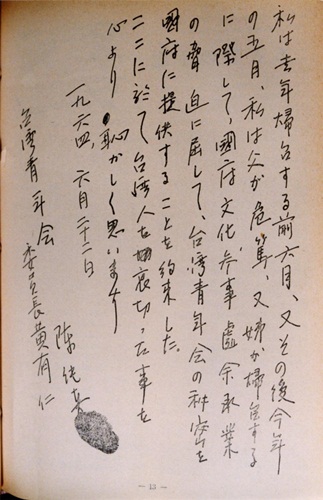 私は去年帰台する前六月、又その後今年
の五月、私は父が危篤、又姉が帰台する
に際して、國府文化参事盧余承業
の脅迫に屈して、台湾青年会の秘密を
國府に提供することを約束した。
ここに於て台湾人を裏切った事を
心より恥かしく思います
一九六四，六月二十二日
陳純
台湾青年会 委員長黄有仁
— 13 —